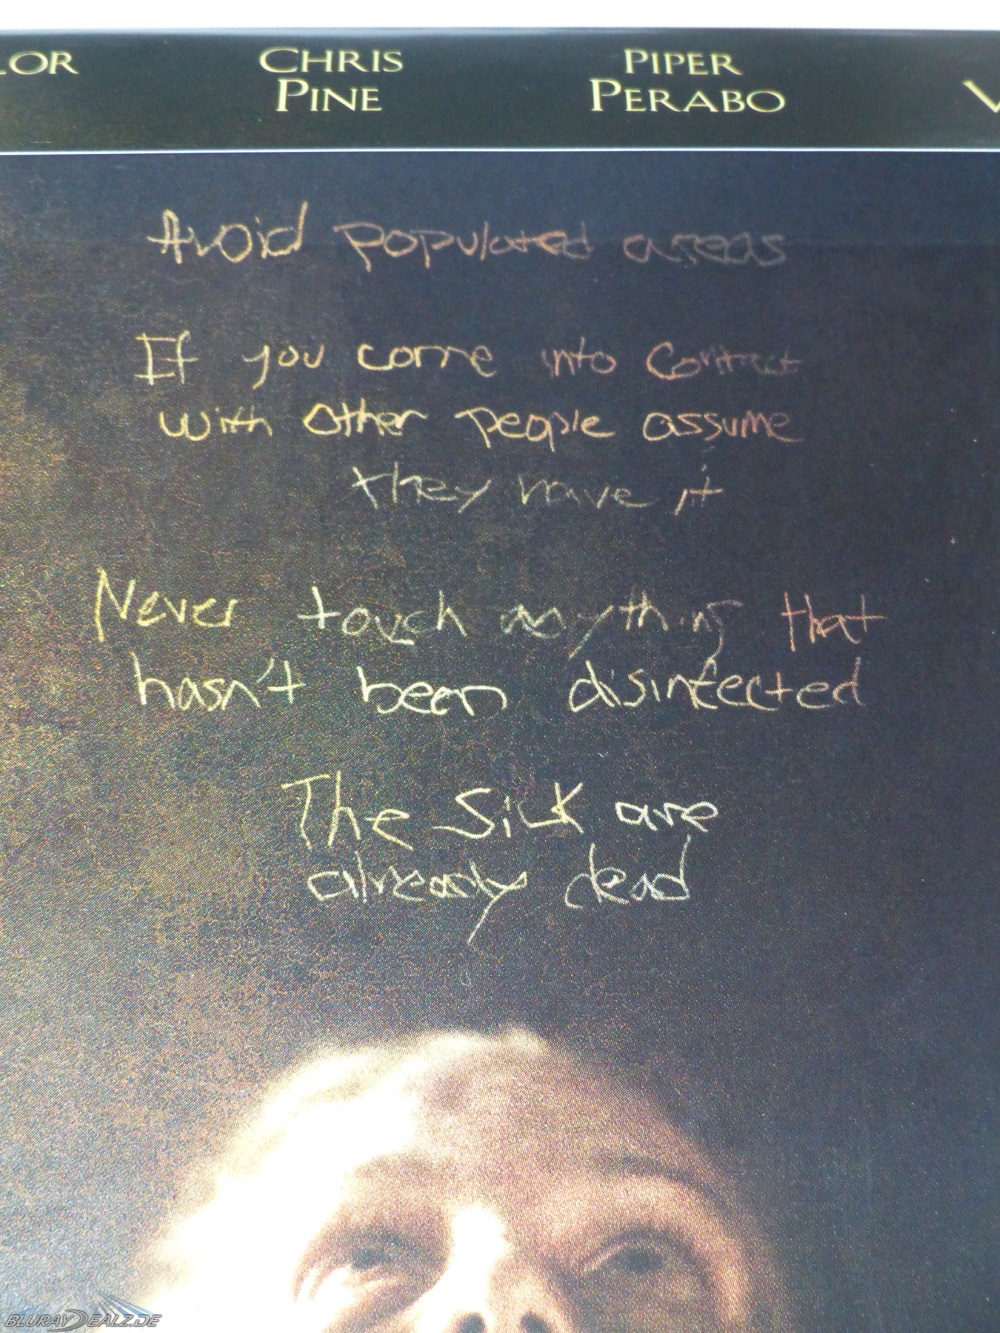 LOR
CHRIS
PINE
PIPER
PERABO
V
Avoid populated areas
If you come into contact
with other people assume
they have it
Never touch anything that
hasn't been disinfected
The Sick are
already dead
BLURAYDEALZ.DE